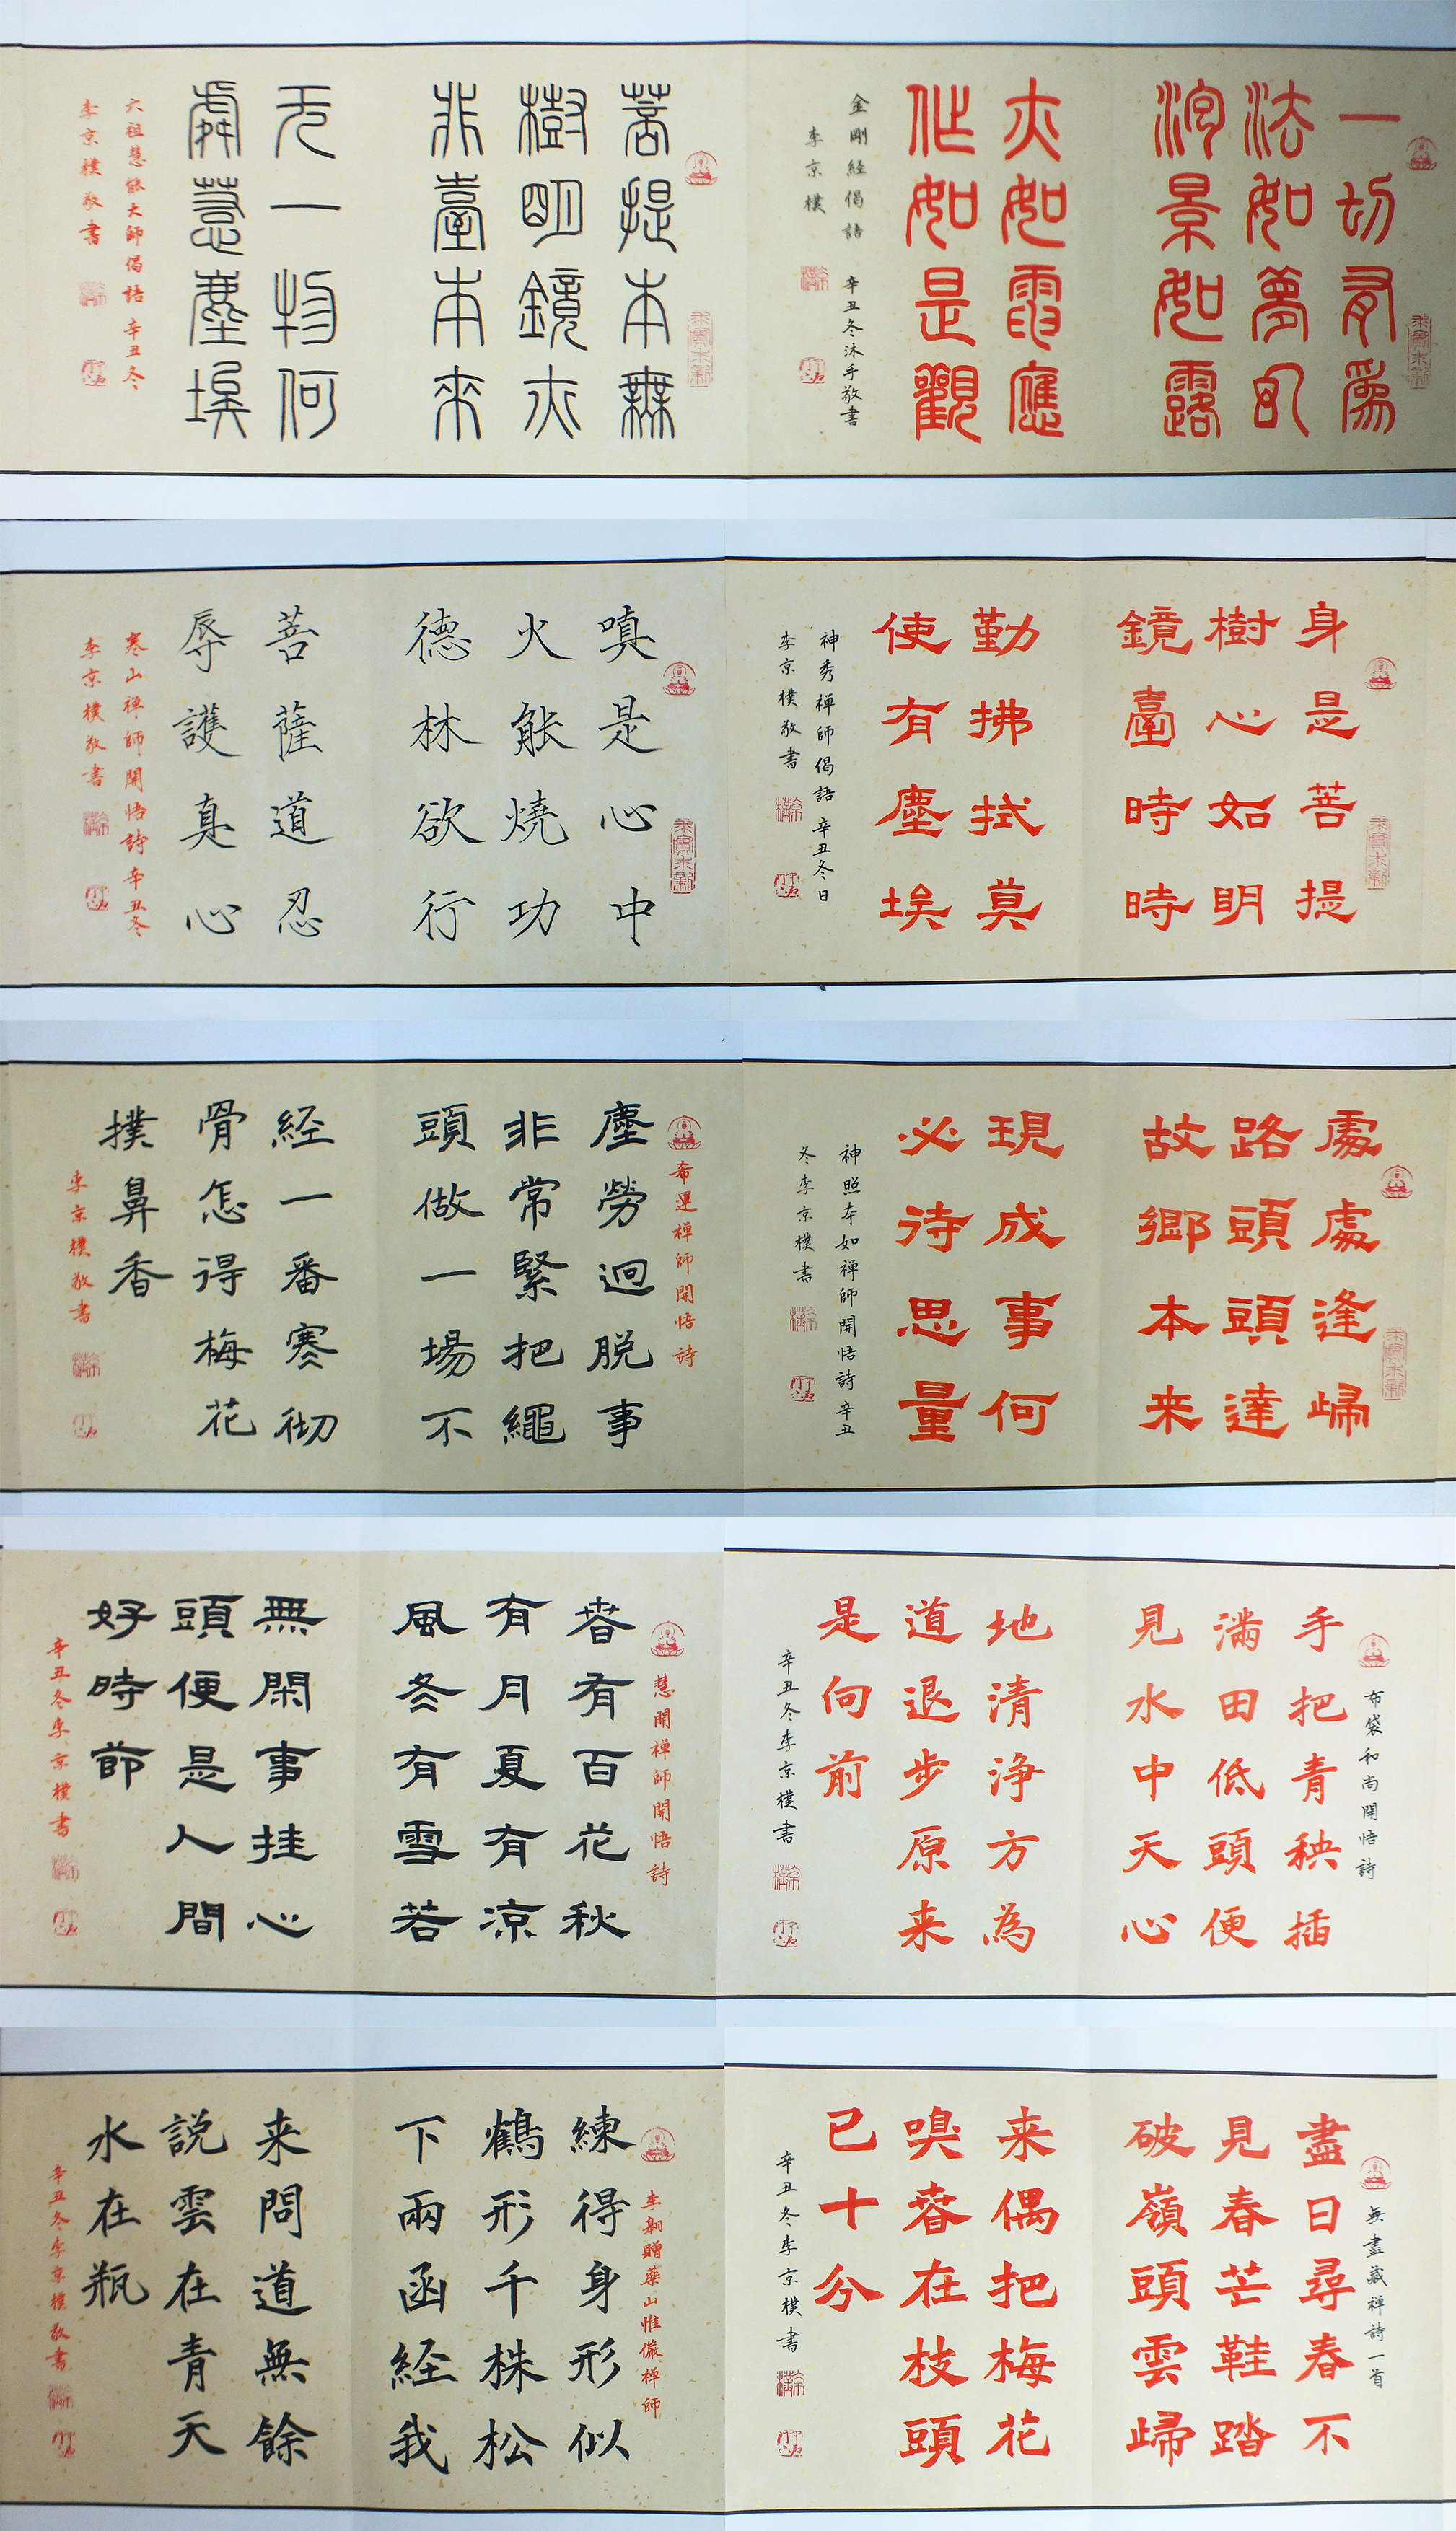 一切有為
法如夢幻
泡景如露
亦如電應
作如是觀
金剛经偈語 辛丑冬沐手敬書
李京樸
菩提本無
樹明鏡亦
非臺本来
无一物何
處惹塵埃
六祖慧能大師偈語 辛丑冬
李京樸敬書
身是菩提
樹心如明
鏡臺時時
勤拂拭莫
使有塵埃
神秀禅師偈語 辛丑冬日
李京樸敬書
嗔是心中
火能燒功
德林欲行
菩薩道忍
辱護真心
寒山禅師開悟詩辛丑冬
李京樸敬書
處處逢歸
路頭頭達
故鄉本来
現成事何
必待思量
神照本如禅師開悟詩辛丑
冬李京樸書
希運禅師開悟詩
塵勞迥脱事
非常緊把繩
頭做一場不
经一番寒彻
骨怎得梅花
撲鼻香
李京樸敬書
布袋和尚開悟詩
手把青秧插
满田低頭便
見水中天心
地清浄方為
道退步原来
是向前
辛丑冬李京樸書
慧開禅師開悟詩
春有百花秋
有月夏有凉
風冬有雪若
無閑事挂心
頭便是人間
好時節
辛丑冬李京樸書
無盡藏禅詩一首
盡日尋春不
見春芒鞋踏
破嶺頭雲歸
来偶把梅花
嗅春在枝頭
已十分
辛丑冬李京樸書
李翱贈藥山惟儼禅師
練得身形似
鶴形千株松
下兩函经我
来問道無餘
説雲在青天
水在瓶
辛丑冬李京樸敬書